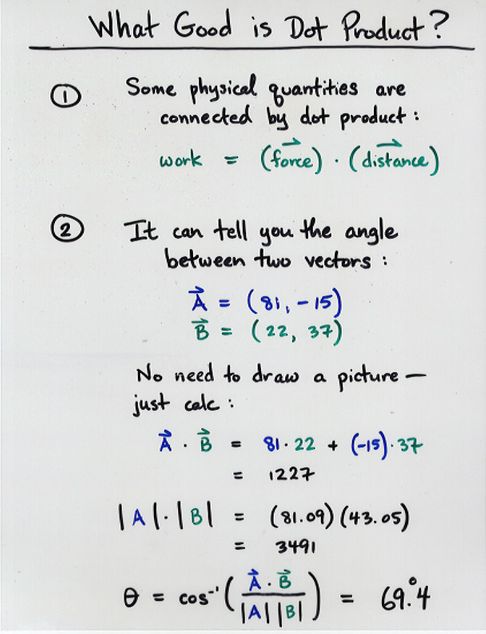 What Good is Dot Product?
① Some physical quantities are
connected by dot product:
work = (force⃗) · (distance⃗)
② It can tell you the angle
between two vectors:
A⃗ = (81, -15)
B⃗ = (22, 37)
No need to draw a picture —
just calc:
A⃗ · B⃗ = 81·22 + (-15)·37
= 1227
|A|·|B| = (81.09)(43.05)
= 3491
θ = cos⁻¹(A⃗·B⃗ / |A||B|) = 69.°4